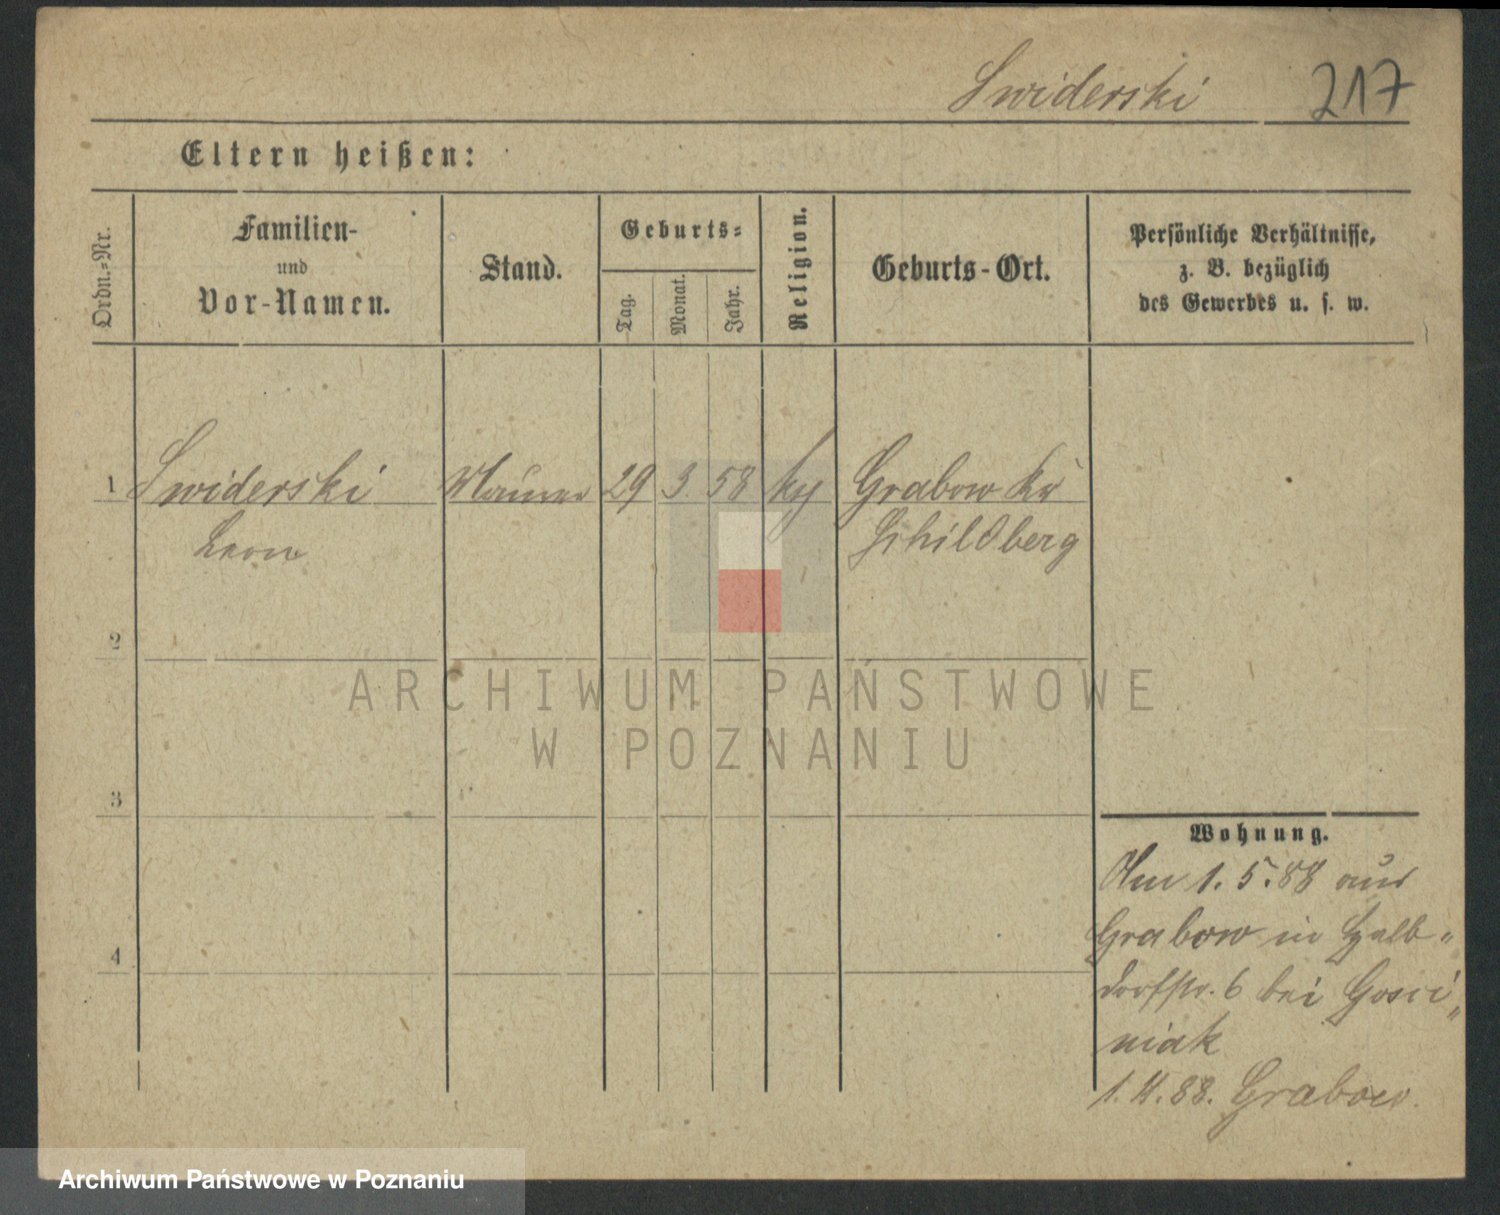 Swiderski 217
Eltern heißen:
Ordn.-Nr.
Familien-
und
Vor-Namen.
Stand.
Geburts-
Tag.
Monat.
Jahr.
Religion.
Geburts-Ort.
Persönliche Verhältnisse,
z. B. bezüglich
des Gewerbes u. s. w.
1 Swiderski Maurer 29 3. 58 Grabow Kr
Leon Schildberg
2
3
4
ARCHIWUM PAŃSTWOWE
W POZNANIU
Wohnung.
Am 1. 5. 88 aus
Grabow in Halb-
dorfstr. 6 bei Gosci-
niak
88. Grabow
Archiwum Państwowe w Poznaniu